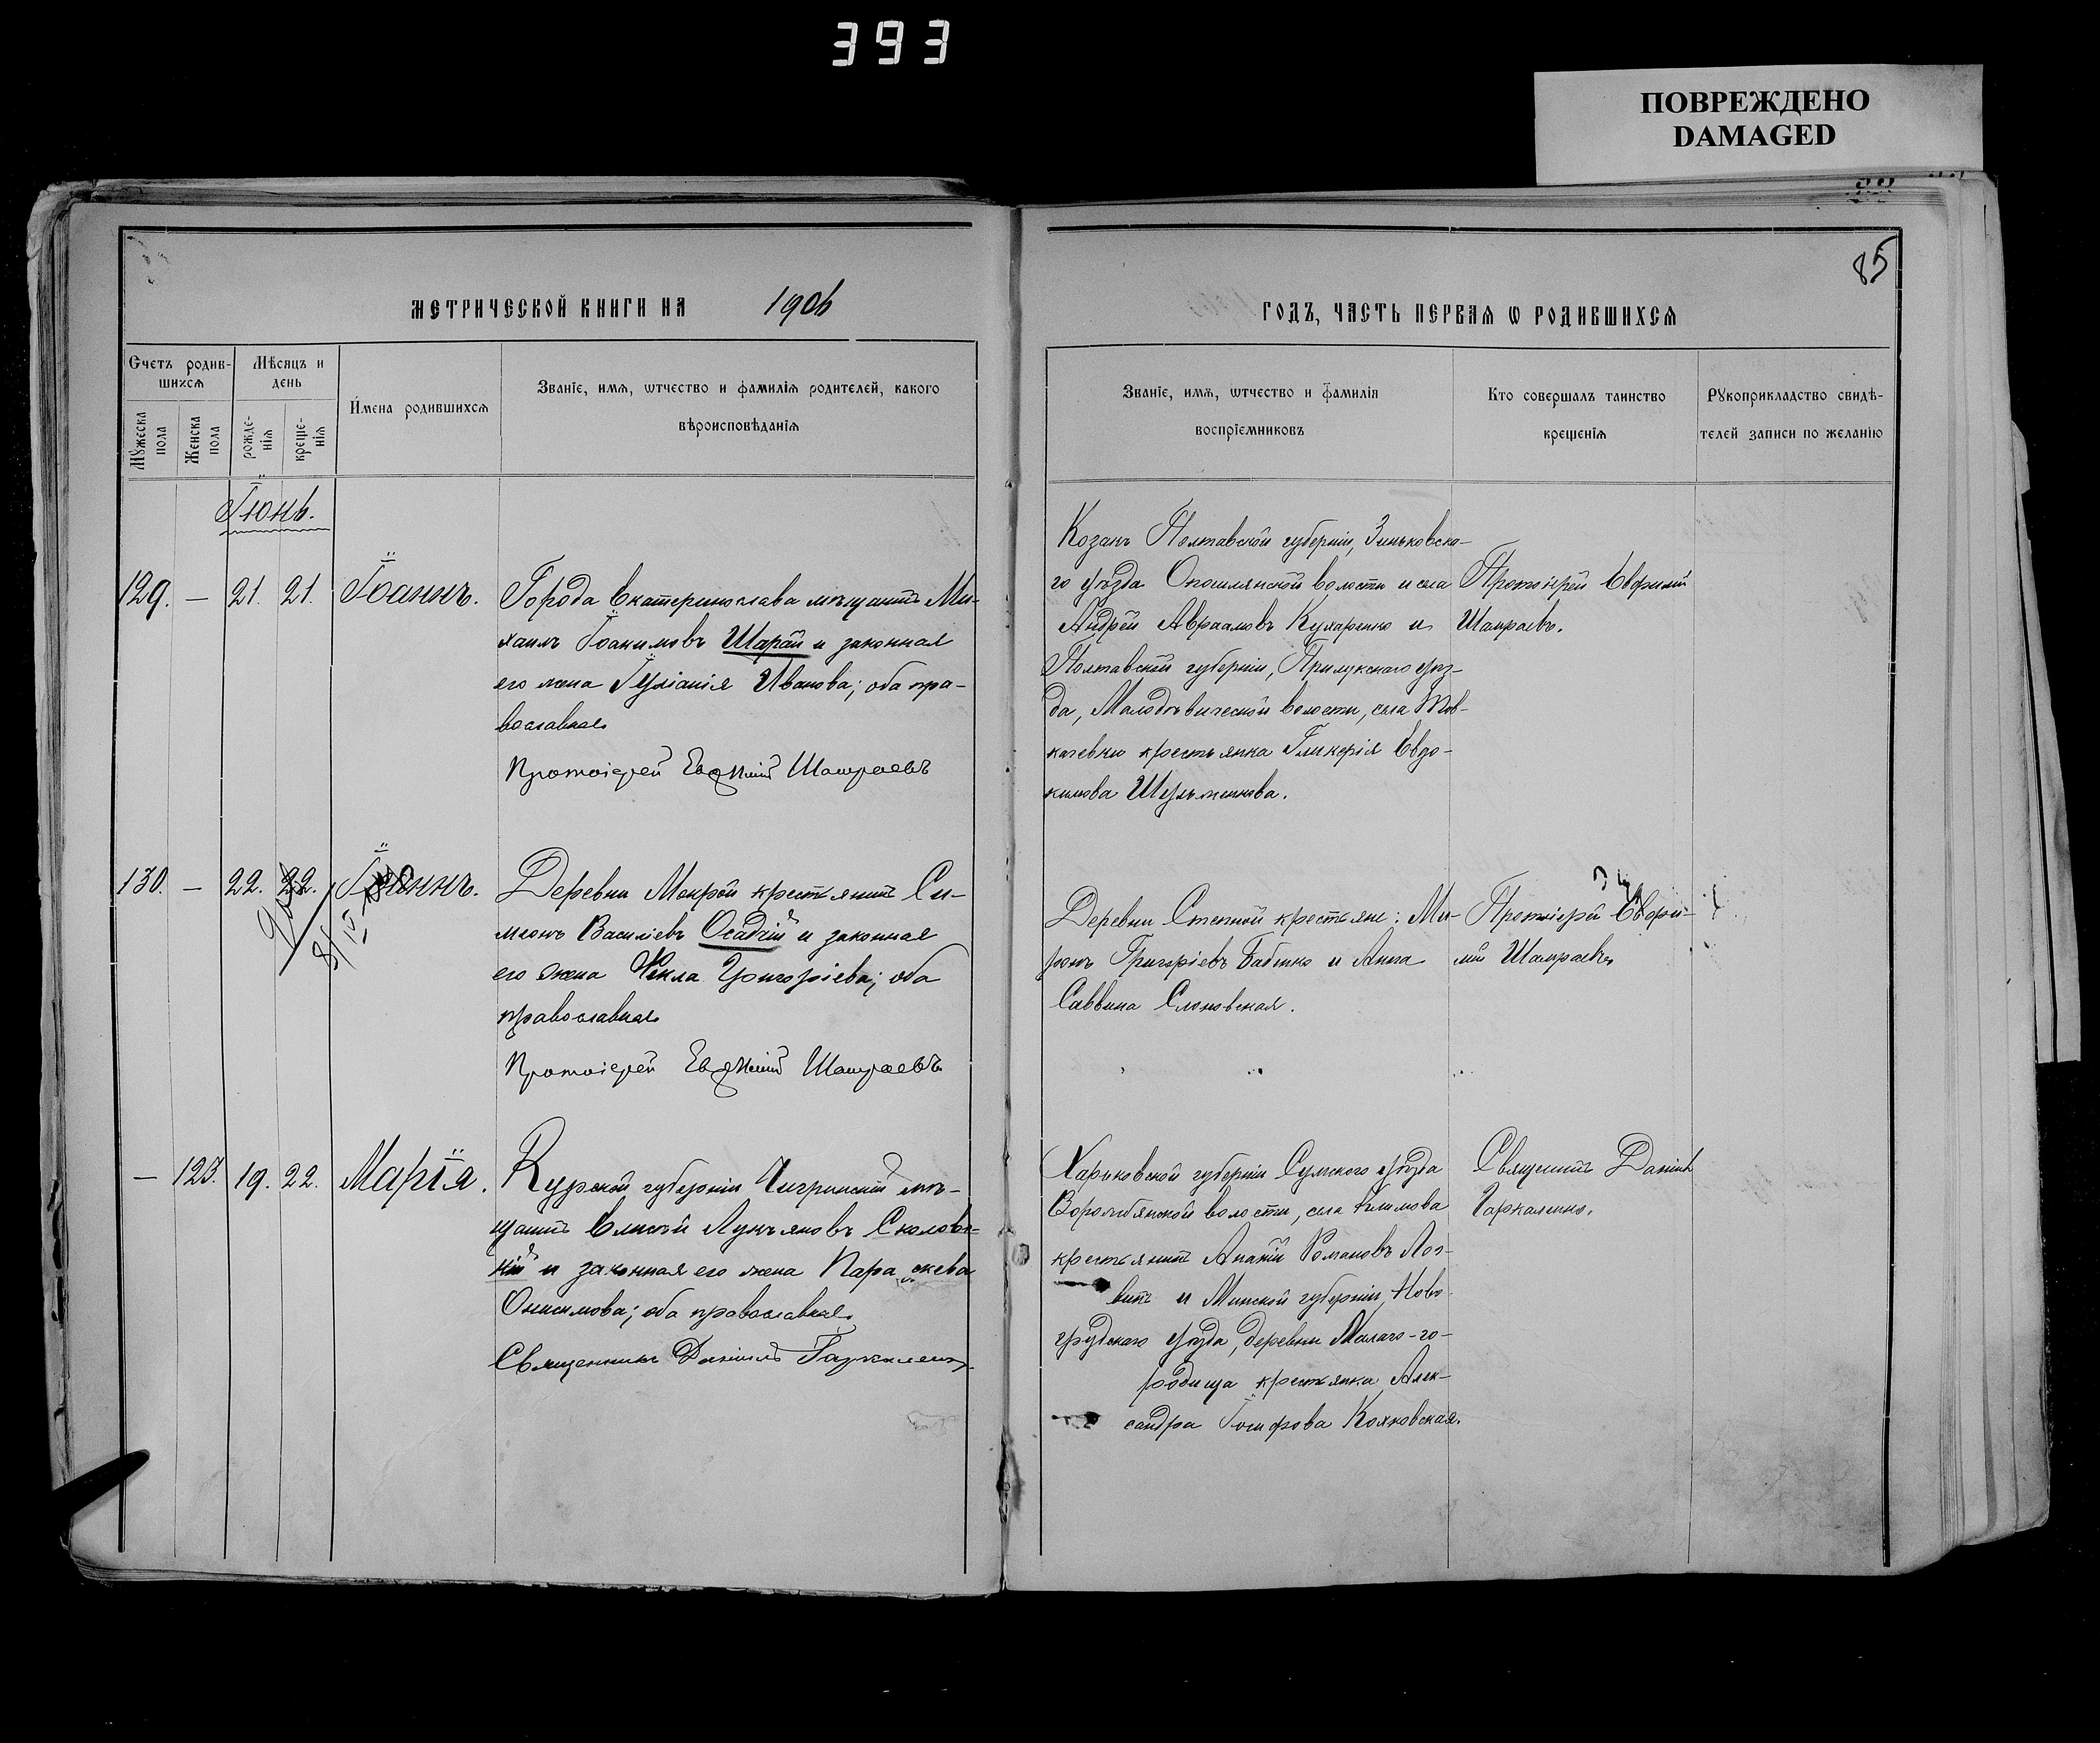 393
ПОВРЕЖДЕНО
DAMAGED
85
МЕТРИЧЕСКОЙ КНИГИ НА 1906
ГОДЪ, ЧАСТЬ ПЕРВАЯ Ѡ РОДИВШИХСЯ
Счетъ родив-
шихся
Мужеска
пола
Женска
пола
Мѣсяцъ и
день
рожде-
нія
креще-
нія
Имена родившихся
Званіе, имя, ѡтчество и фамилія родителей, какого
вѣроисповѣданія
Званіе, имя, ѡтчество и фамилія
воспріемниковъ
Кто совершалъ таинство
крещенія
Рукоприкладство свидѣ-
телей записи по желанію
Іюнь.
129. — 21. 21. Іоаннъ.
Города Екатеринослава мѣщанинъ Ми-
хаилъ Іоакимовъ Шарай и законная
его жена Іуліанія Иванова; оба пра-
вославные
Протоіерей Евфимій Шамраевъ
Козакъ Полтавской губерніи, Зиньковска-
го уѣзда Опошлянской волости и села
Андрей Авраамовъ Кухаренко и
Полтавской губерніи, Прилукскаго уѣз-
да, Малодѣвической волости, села Тов-
качевки крестьянка Гликерія Евдо-
кимова Шульженкова.
Протоіерей Евфимій
Шамраевъ.
130. — 22. 22. Іоаннъ.
Деревни Мокрой крестьянинъ Си-
меонъ Василіевъ Осадчій и законная
его жена Ѳекла Григоріева; оба
православные
Протоіерей Евфимій Шамраевъ
Деревни Степной крестьяне: Ми-
ронъ Григоріевъ Бабенко и Анна
Саввина Слоновская.
Протоіерей Евфи-
мій Шамраевъ
— 123. 19. 22. Марія.
Курской губерніи Щигринскій мѣ-
щанинъ Елисей Лукьяновъ Сколов-
кій и законная его жена Параскева
Онисимова; оба православные
Священникъ Даніилъ Гаркаленко
Харьковской губерніи Сумского уѣзда
Ворожбянской волости, села Климова
крестьянинъ Ананій Романовъ Лог-
винъ и Минской губерніи, Ново-
грудскаго уѣзда, деревни Малаго-го-
родища крестьянка Алек-
сандра Іосифова Кохновская.
Священникъ Даніилъ
Гаркаленко.